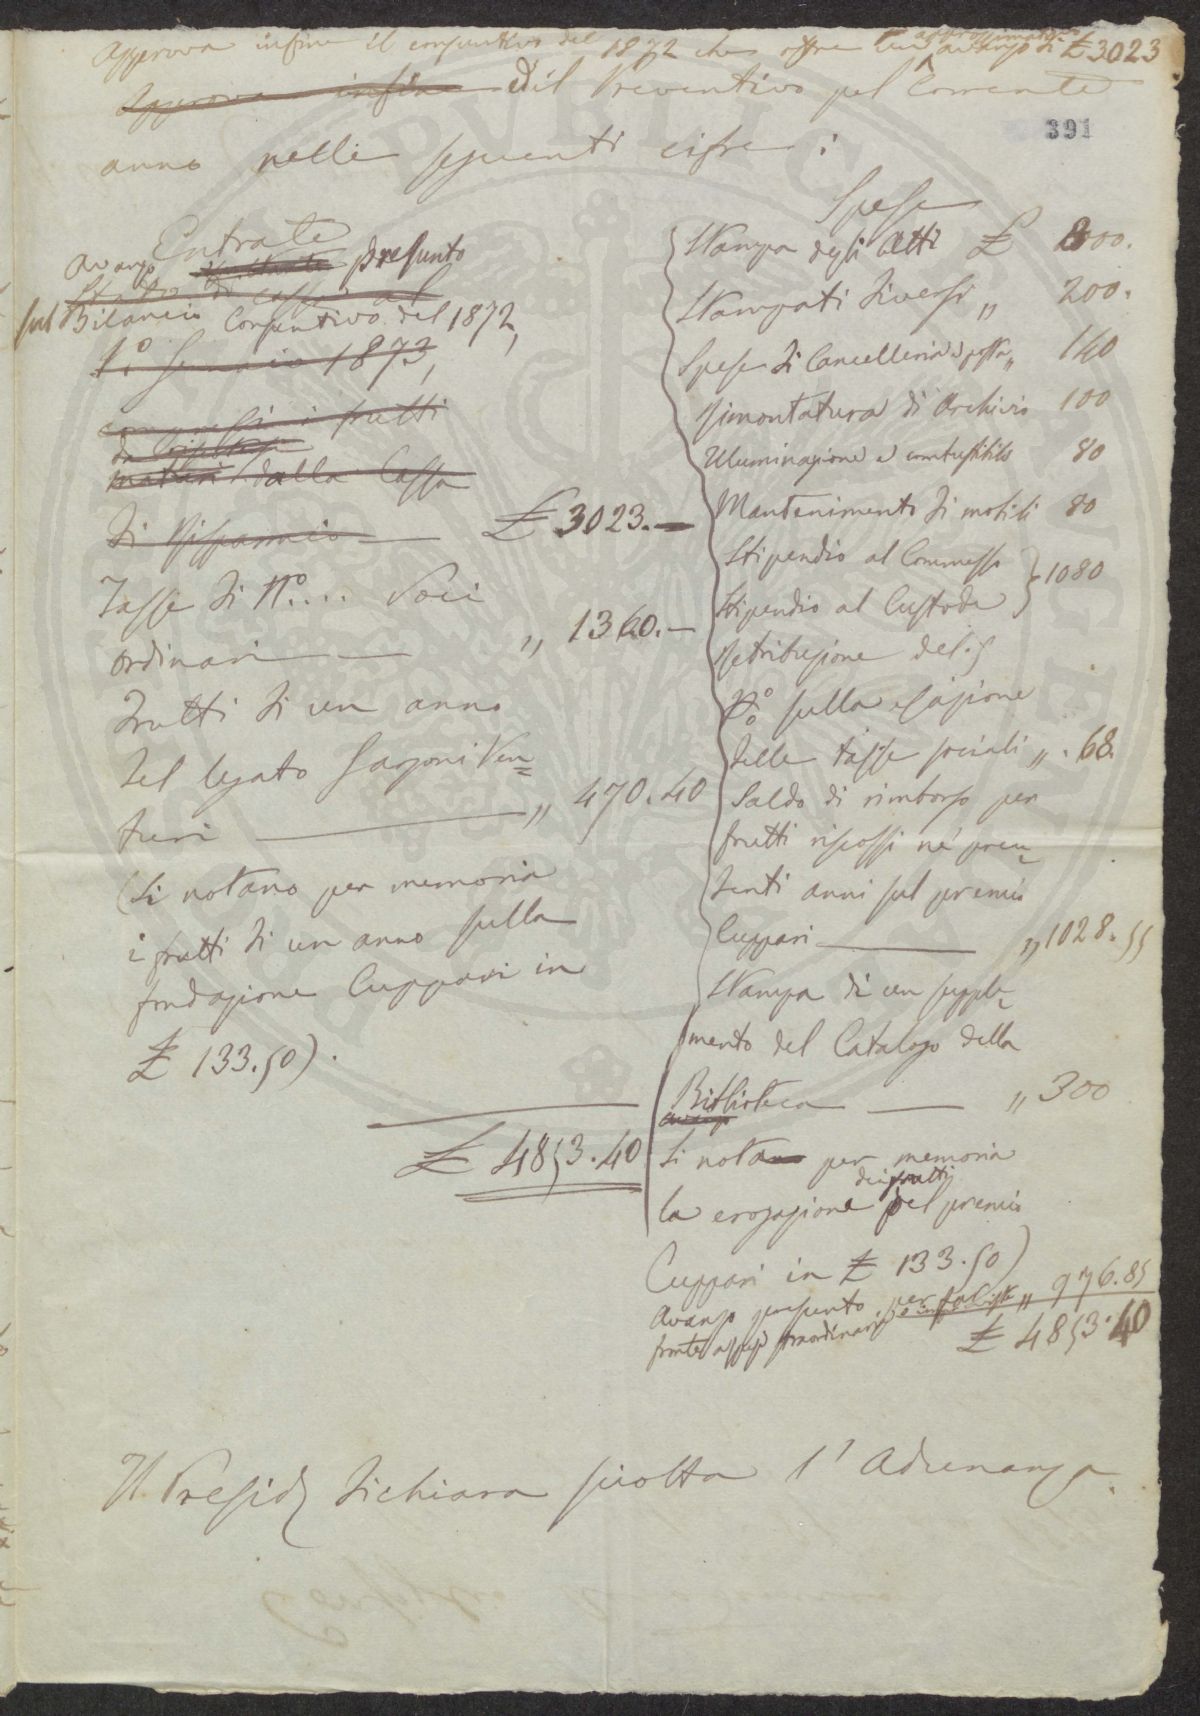 Approva infine il consuntivo del 1872 che offre un approssimativo avanzo di £ 3023
Approva infine e il Preventivo pel Corrente
391
anno nelle seguenti cifre:
Entrate
Avanzo presunto
Stato di cassa al
sul Bilancio Consuntivo del 1872,
1.° Gennaio 1873,
compresi i frutti
dalla Cassa
di Risparmio — £ 3023.—
Tasse di N.° .... Soci
ordinari — „ 1360.—
Frutti di un anno
del legato Gargoni Ven=
turi — „ 470.40
(Si notano per memoria
i frutti di un anno sulla
fondazione Cuppari in
£ 133.50).
£ 4853.40
Spese
Stampa degli Atti £ 800.
Stampati diversi „ 200.
Spese di Cancelleria e posta „ 140
Rimontatura di Archivio 100
Illuminazione e combustibile 80
Mantenimento di mobili 80
Stipendio al Commesso
Stipendio al Custode } 1080
Retribuzione del 5
P% sulla esazione
delle tasse sociali „ 68.
Saldo di rimborso per
frutti riscossi ne' prece=
denti anni sul premio
Cuppari — „ 1028.55
Stampa di un supple=
mento del Catalogo della
Biblioteca — „ 300
avanzo
Si nota per memoria
la erogazione dei frutti del premio
Cuppari in £ 133.50)
Avanzo presunto per far „ 976.85
fronte a spese straordinarie
£ 4853.40
Il Presid.e dichiara sciolta l'Adunanza.